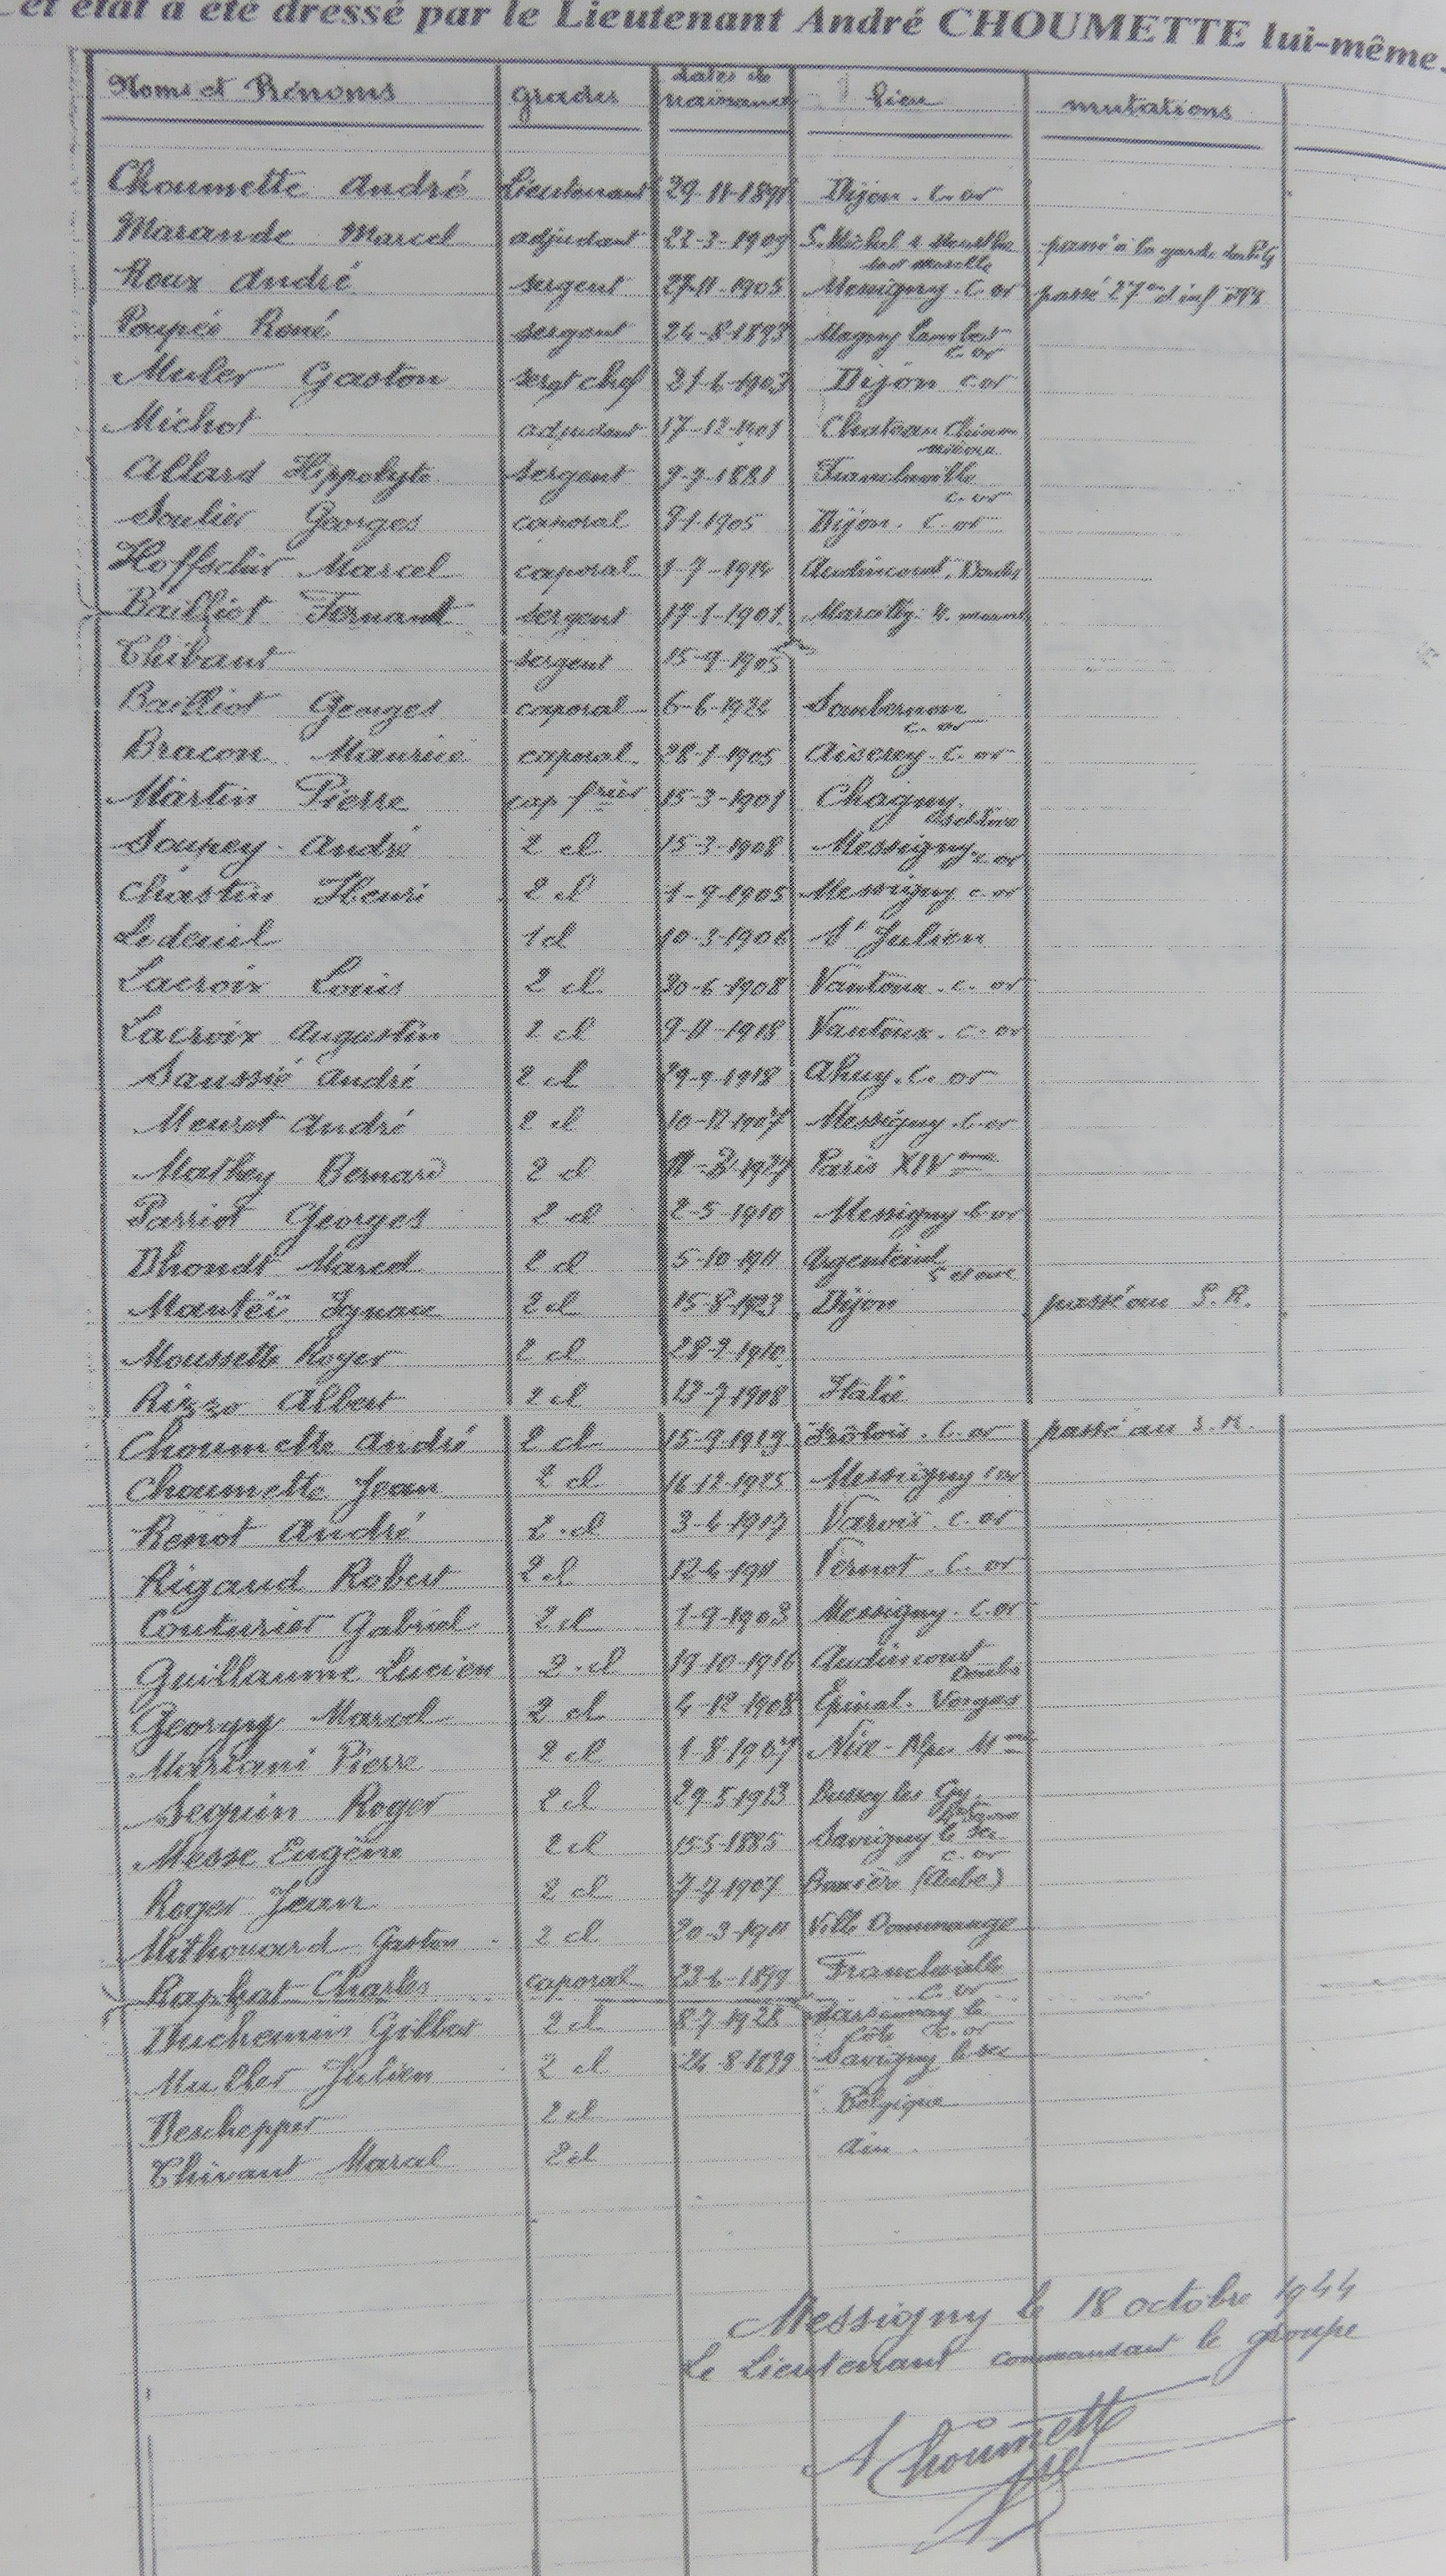 et état a été dressé par le Lieutenant André CHOUMETTE lui-même.
Noms et Prénoms grades dates de naissance lieu mutations
Choumette André Lieutenant 29-11-1891 Dijon. C. or
Marande Marcel adjudant 22-3-1909 S. Michel s Meurthe passé à la garde
Roux André sergent 27-11-1905 Messigny. C. or passé 27 d'inf
Poupée René sergent 24-8-1893 Magny Lambert C. or
Muler Gaston sergt chef 21-6-1903 Dijon C or
Michot adjudant 17-12-1901 Chateau Chinon
Allard Hippolyte sergent 9-9-1881 Francheville C. or
Soulier Georges caporal 9-1-1905 Dijon. C. or
Hoffschir Marcel caporal 1-7-1914 Audincourt. Doubs
Bailliot Fernant sergent 17-1-1901 Marcilly
Thibaut sergent 15-9-1905
Bailliot Georges caporal 6-6-1924 Sombernon C. or
Bracon Maurice caporal 28-1-1905 Aiserey. C. or
Martin Pierre cap frier 15-3-1901 Chagny
Soupey André 2 cl 15-3-1908 Messigny C or
Chastin Henri 2 cl 1-9-1905 Messigny C. or
Ledeuil 1 cl 10-3-1906 St Julien
Lacroix Louis 2 cl 30-6-1908 Vantoux. C. or
Lacroix Augustin 2 cl 9-11-1918 Vantoux. C. or
Saussié André 2 cl 29-9-1918 Ahuy. C. or
Meuret André 2 cl 10-12-1907 Messigny. C. or
Mathey Bernard 2 cl Paris XIVeme
Parriot Georges 2 cl 2-5-1910 Messigny C or
Dhondt Marcel 2 cl 5-10-1911 Argenteuil S et oise
Manteï Ignace 2 cl 15-8-1923 Dijon passé au S. R.
Moussette Roger 2 cl 28-2-1910
Rizzo Albert 2 cl 13-7-1908 Italie
Choumette André 2 cl 15-9-1919 Frôlois. C. or passé au S. R.
Choumette Jean 2 cl 16-12-1925 Messigny C or
Renot André 2 cl 3-4-1917 Varois. C. or
Rigaud Robert 2 cl 12-4-1911 Vernot. C. or
Couturier Gabriel 2 cl 1-9-1903 Messigny. C. or
Guillaume Lucien 2 cl 19-10-1916 Audincourt Doubs
Georgy Marcel 2 cl 4-12-1908 Epinal. Vosges
Mariani Pierre 2 cl 1-8-1907 Nice - Alpes Mmes
Seguin Roger 2 cl 29-5-1913 les Gy
Messe Eugène 2 cl 15-5-1885 Savigny le sec C. or
Roger Jean 2 cl 7-7-1907 (Aube)
Mithouard Gaston 2 cl 20-3-1911 Ville Dommange
Raphat Charles caporal 23-6-1899 Francheville C. or
Duchemin Gilbert 2 cl 8-7-1928 la Côte C. or
Muller Julien 2 cl 24-8-1899 Savigny le sec
Deschepper 2 cl Belgique
Thivant Marcel 2 cl Ain
Messigny le 18 octobre 1944
Le Lieutenant commandant le groupe
A Choumette